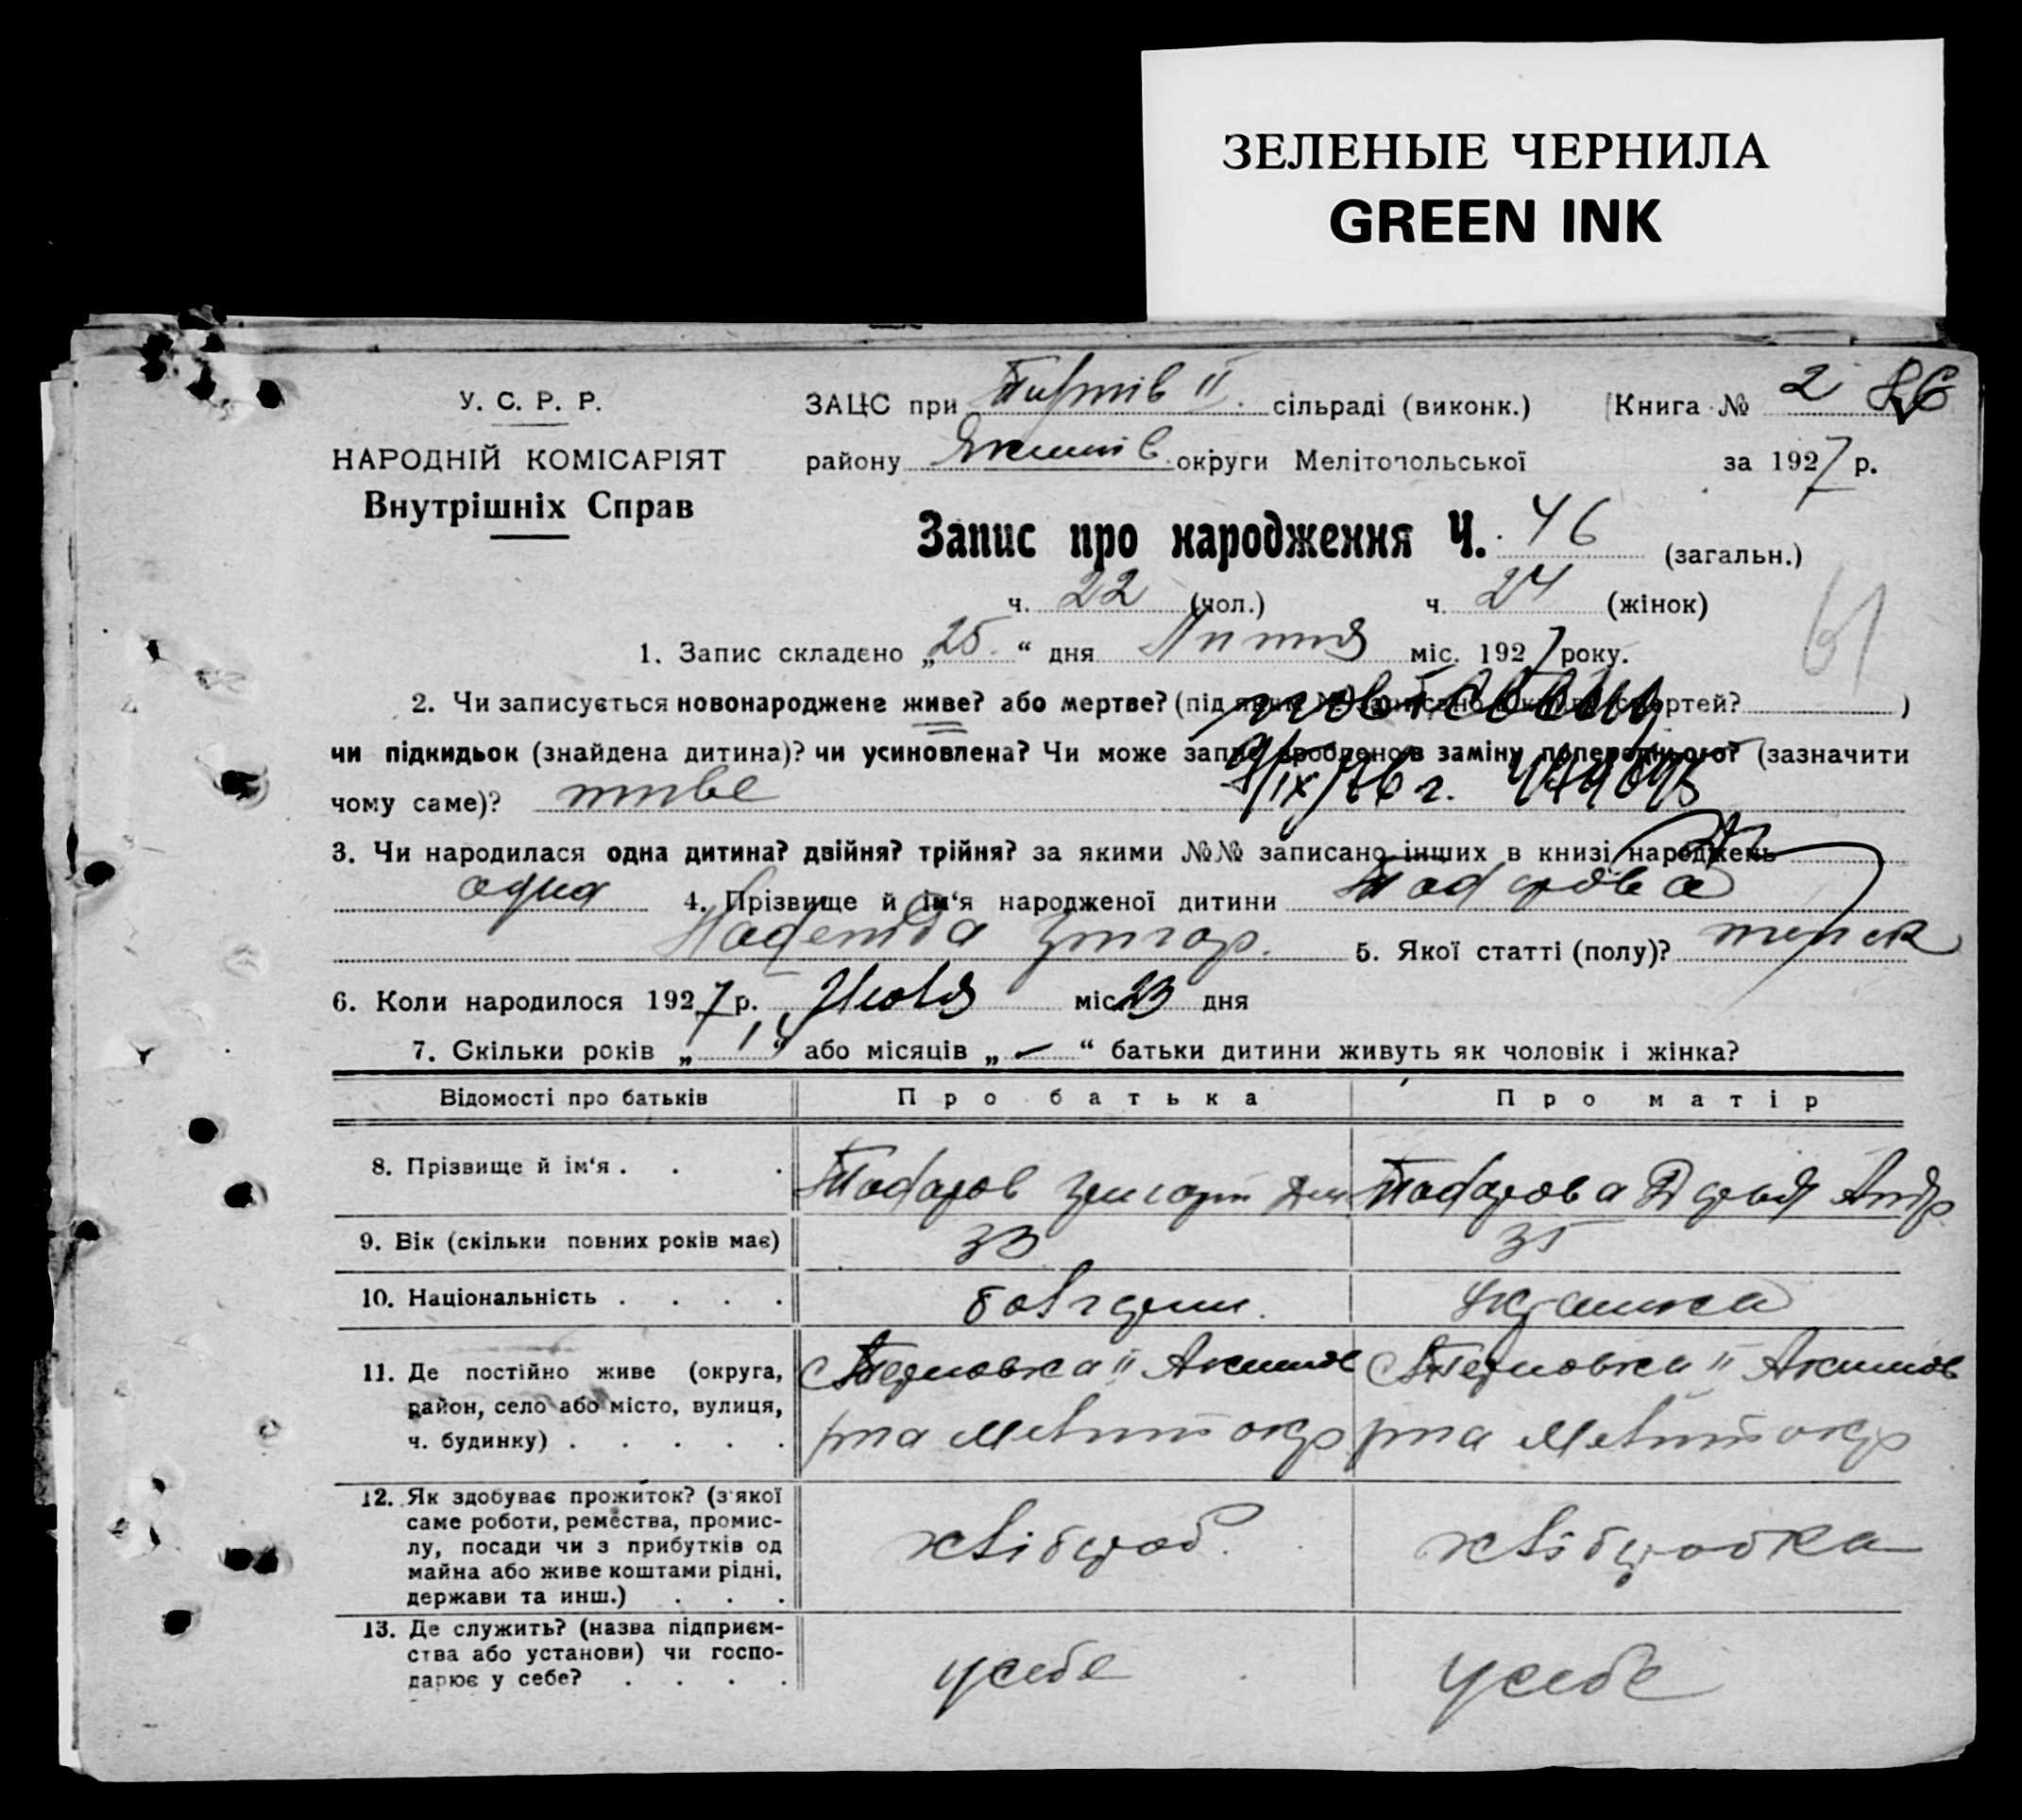 ЗЕЛЕНЫЕ ЧЕРНИЛА
GREEN INK
У. С. Р. Р.
НАРОДНІЙ КОМІСАРІЯТ
Внутрішніх Справ
ЗАЦС при II сільраді (виконк.) Книга № 2
району Якимів округи Мелітопольської за 1927 р.
Запис про народження Ч. 46 (загальн.)
ч. 22 (чол.) ч. 24 (жінок)
61
1. Запис складено „25“ дня Липня міс. 1927 року.
2. Чи записується новонароджене живе? або мертве? (під яким № смертей? )
чи підкидьок (знайдена дитина)? чи усиновлена? Чи може запис зроблено в заміну попереднього? (зазначити
чому саме)? живе
повт свид
9/IX/76 г.
3. Чи народилася одна дитина? двійня? трійня? за якими №№ записано інших в книзі народжень
одна 4. Прізвище й ім‘я народженої дитини Тодорова
Надежда Григор. 5. Якої статті (полу)? женск
6. Коли народилося 1927 р. Июля міс 23 дня
7. Скільки років „14“ або місяців „—“ батьки дитини живуть як чоловік і жінка?
Відомості про батьків Про батька Про матір
8. Прізвище й ім‘я . . . Тодоров Григорій Дем Тодорова Дарья Андр
9. Вік (скільки повних років має) 33 35
10. Національність . . . . болгарин. Українка
11. Де постійно живе (округа, с Терновка II Акимов с Терновка II Акимов
район, село або місто, вулиця,
ч. будинку) . . . . . р-на Меліт окр р-на Меліт окр
12. Як здобуває прожиток? (з якої
саме роботи, ремества, промис-
лу, посади чи з прибутків од хлібороб. хліборобка
майна або живе коштами рідні,
держави та инш.) . . .
13. Де служить? (назва підприєм-
ства або установи) чи госпо-
дарює у себе? . . . . у себе у себе